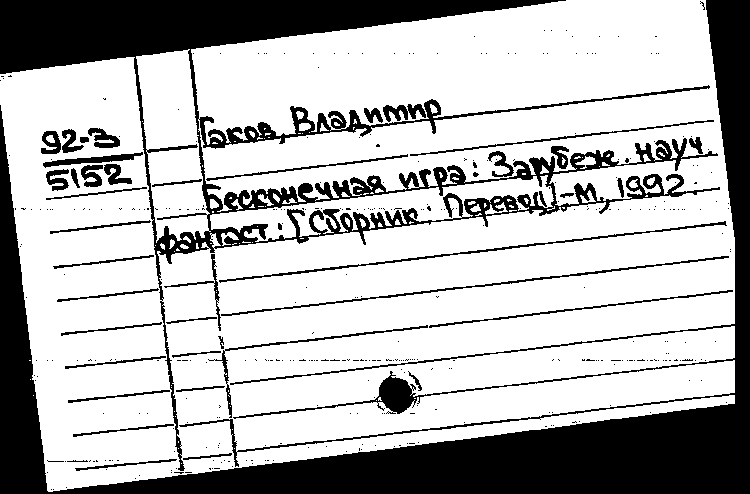 92-3
5152
Гаков, Владимир
Бесконечная игра: Зарубеж. науч.
фантаст.: [Сборник: Перевод].-М., 1992.